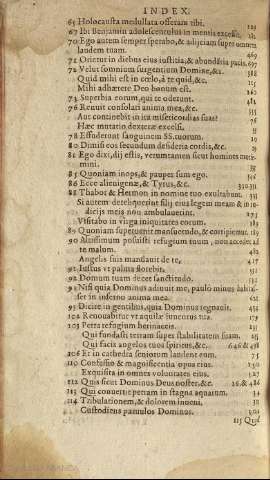 INDEX.
65 Holocausta medullata offeram tibi.
67 Ibi Beniamin adolescentulus in mentis excessu.
70 Ego autem semper sperabo, & adijciam super omnem
laudem tuam. 469
71 Orietur in diebus eius iustitia, & abundãtia pacis. 697
72 Velut somnium surgentium Domine, &c. 388
Quid mihi est in cœlo, à te quid, &c. 105
Mihi adhærere Deo bonum est.
73 Superbia eorum, qui te oderunt. 481
76 Renuit consolari anima mea, &c.
Aut continebit in ira misericordias suas?
Hæc mutatio dexteræ excelsi.
78 Effuderunt sanguinem SS. tuorum.
80 Dimisi eos secundum desideria cordis, &c.
81 Ego dixi, dij estis, veruntamen sicut homines mori-
mini.
85 Quoniam inops, & pauper sum ego. 306
86 Ecce alienigenæ, & Tyrus, &c.
88 Thabor & Hermon in nomine tuo exultabunt. 335
Si autem dereliquerint filij eius legem meam & in iu-
dicijs meis non ambulauerint. 273
Visitabo in virga iniquitates eorum.
89 Quoniam superuenit mansuetudo, & corripiemur.
90 Altissimum posuisti refugium tuum, non accedet ad
te malum. 482
Angelis suis mandauit de te, 417
91 Iustus vt palma florebit. 551
92 Domum tuam decet sanctitudo. 551
93 Nisi quia Dominus adiuuit me, paulo minus habitas-
set in inferno anima mea. 621
95 Dicite in gentibus, quia Dominus regnauit. 455
102 Renouabitur vt aquilæ iuuentus tua. 179
103 Petra refugium herinaceis. 235
Qui fundasti terram super stabilitatem suam. 45
Qui facis angelos tuos spiritus, &c. 646 & 458
106 Et in cathedra seniorum laudent eum. 75
110 Confessio & magnificentia opus eius. 130
Exquisita in omnes voluntates eius. 127
112 Quis sicut Dominus Deus noster, &c. 26. & 486
113 Qui conuertit petram in stagna aquarum. 34
114 Tribulationem, & dolorem inueni, 32
Custodiens paruulos Dominus.
115 Quid